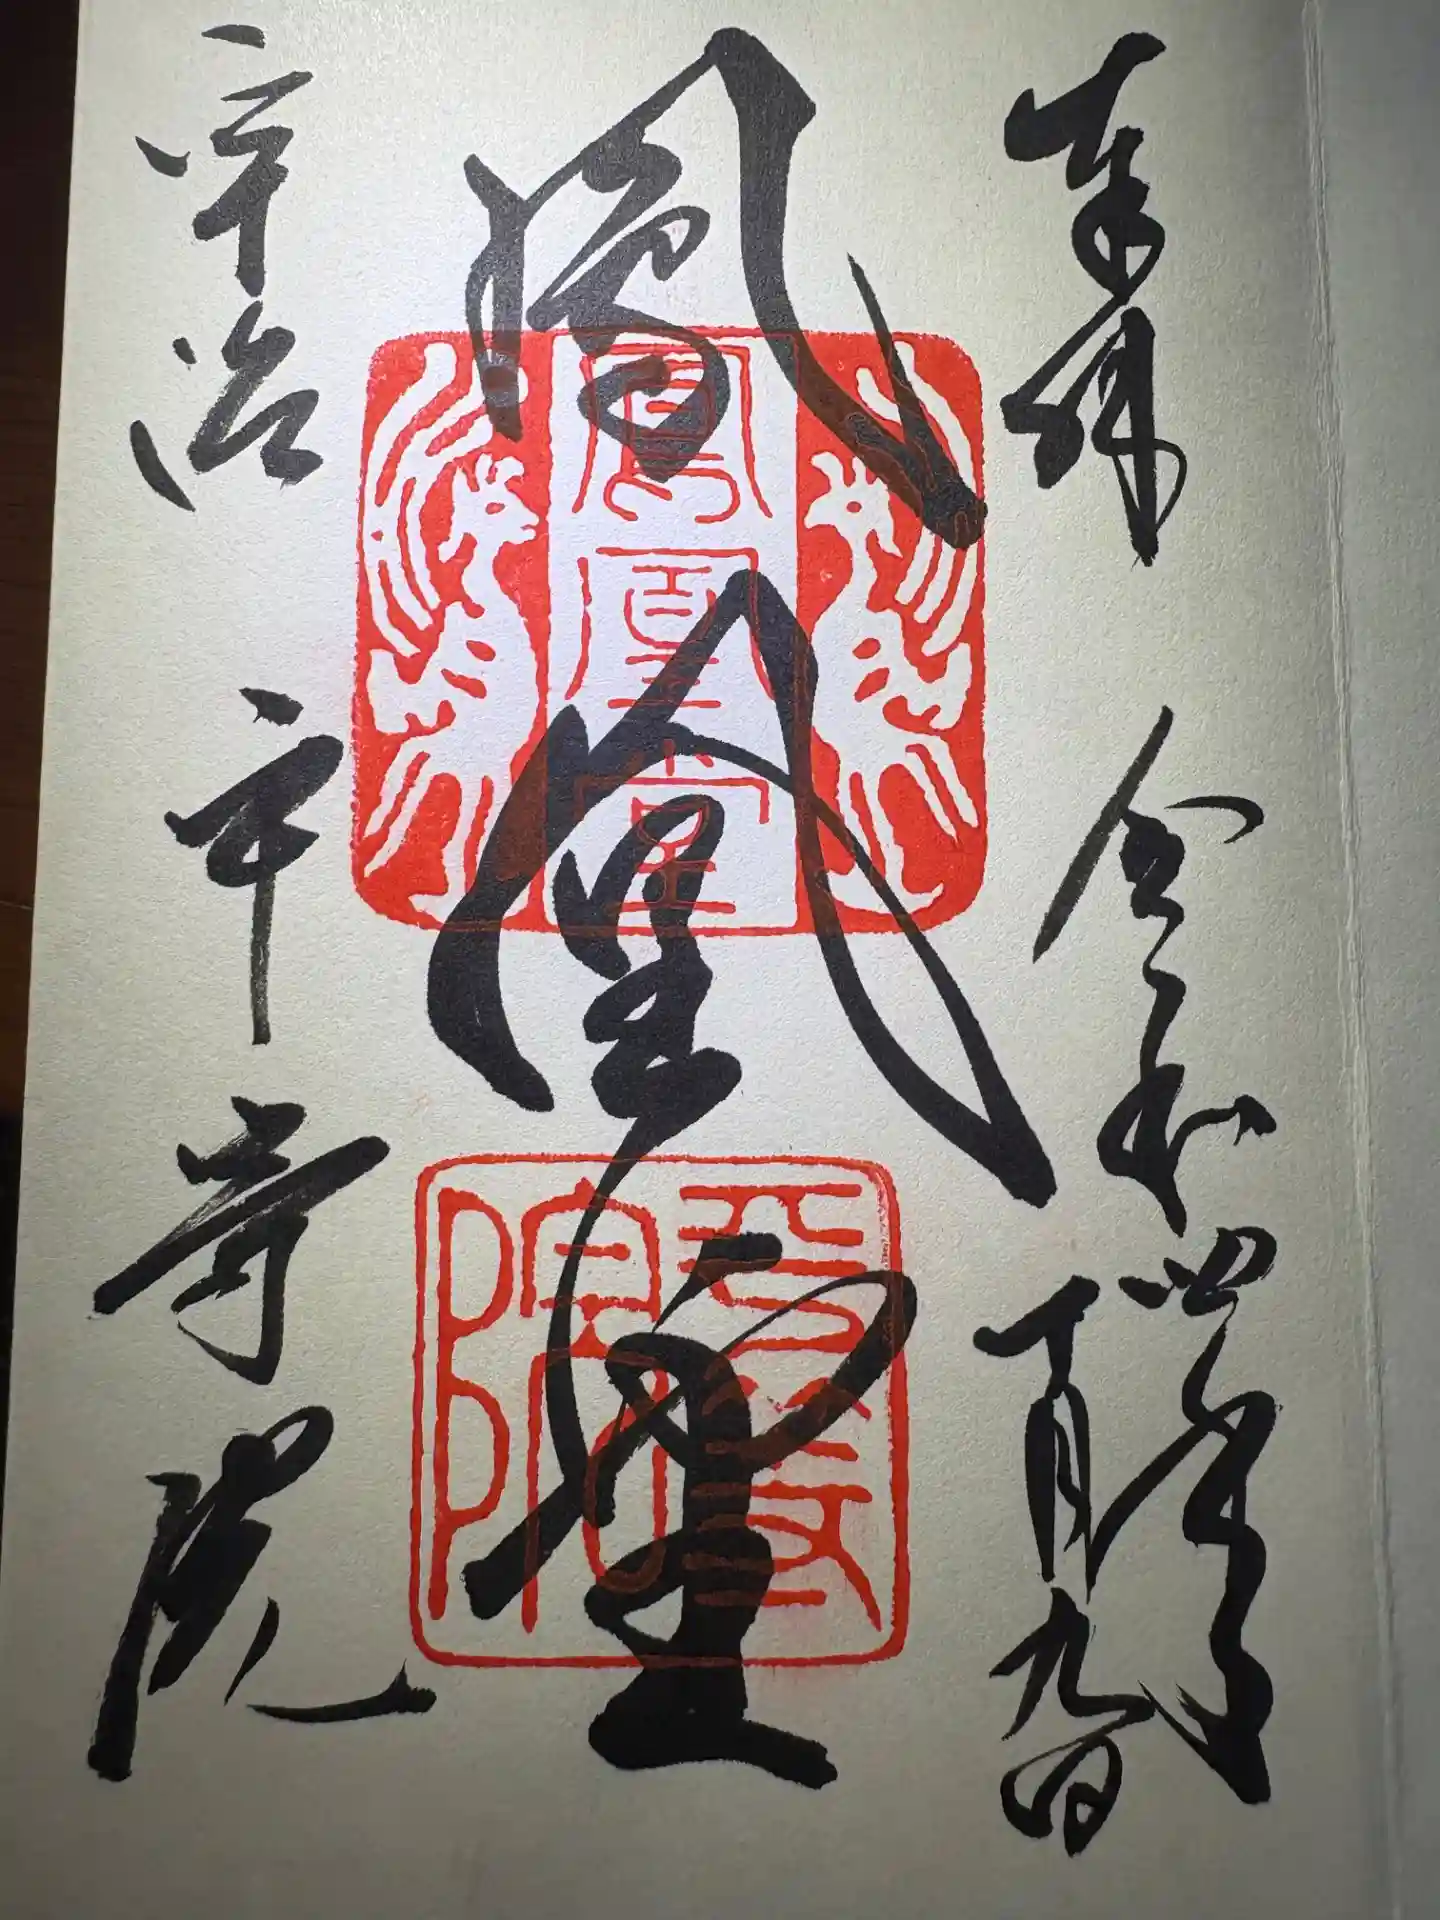 奉拝 令和四年
十月九日
鳳凰堂
宇治 平等院
鳳凰堂
平等院